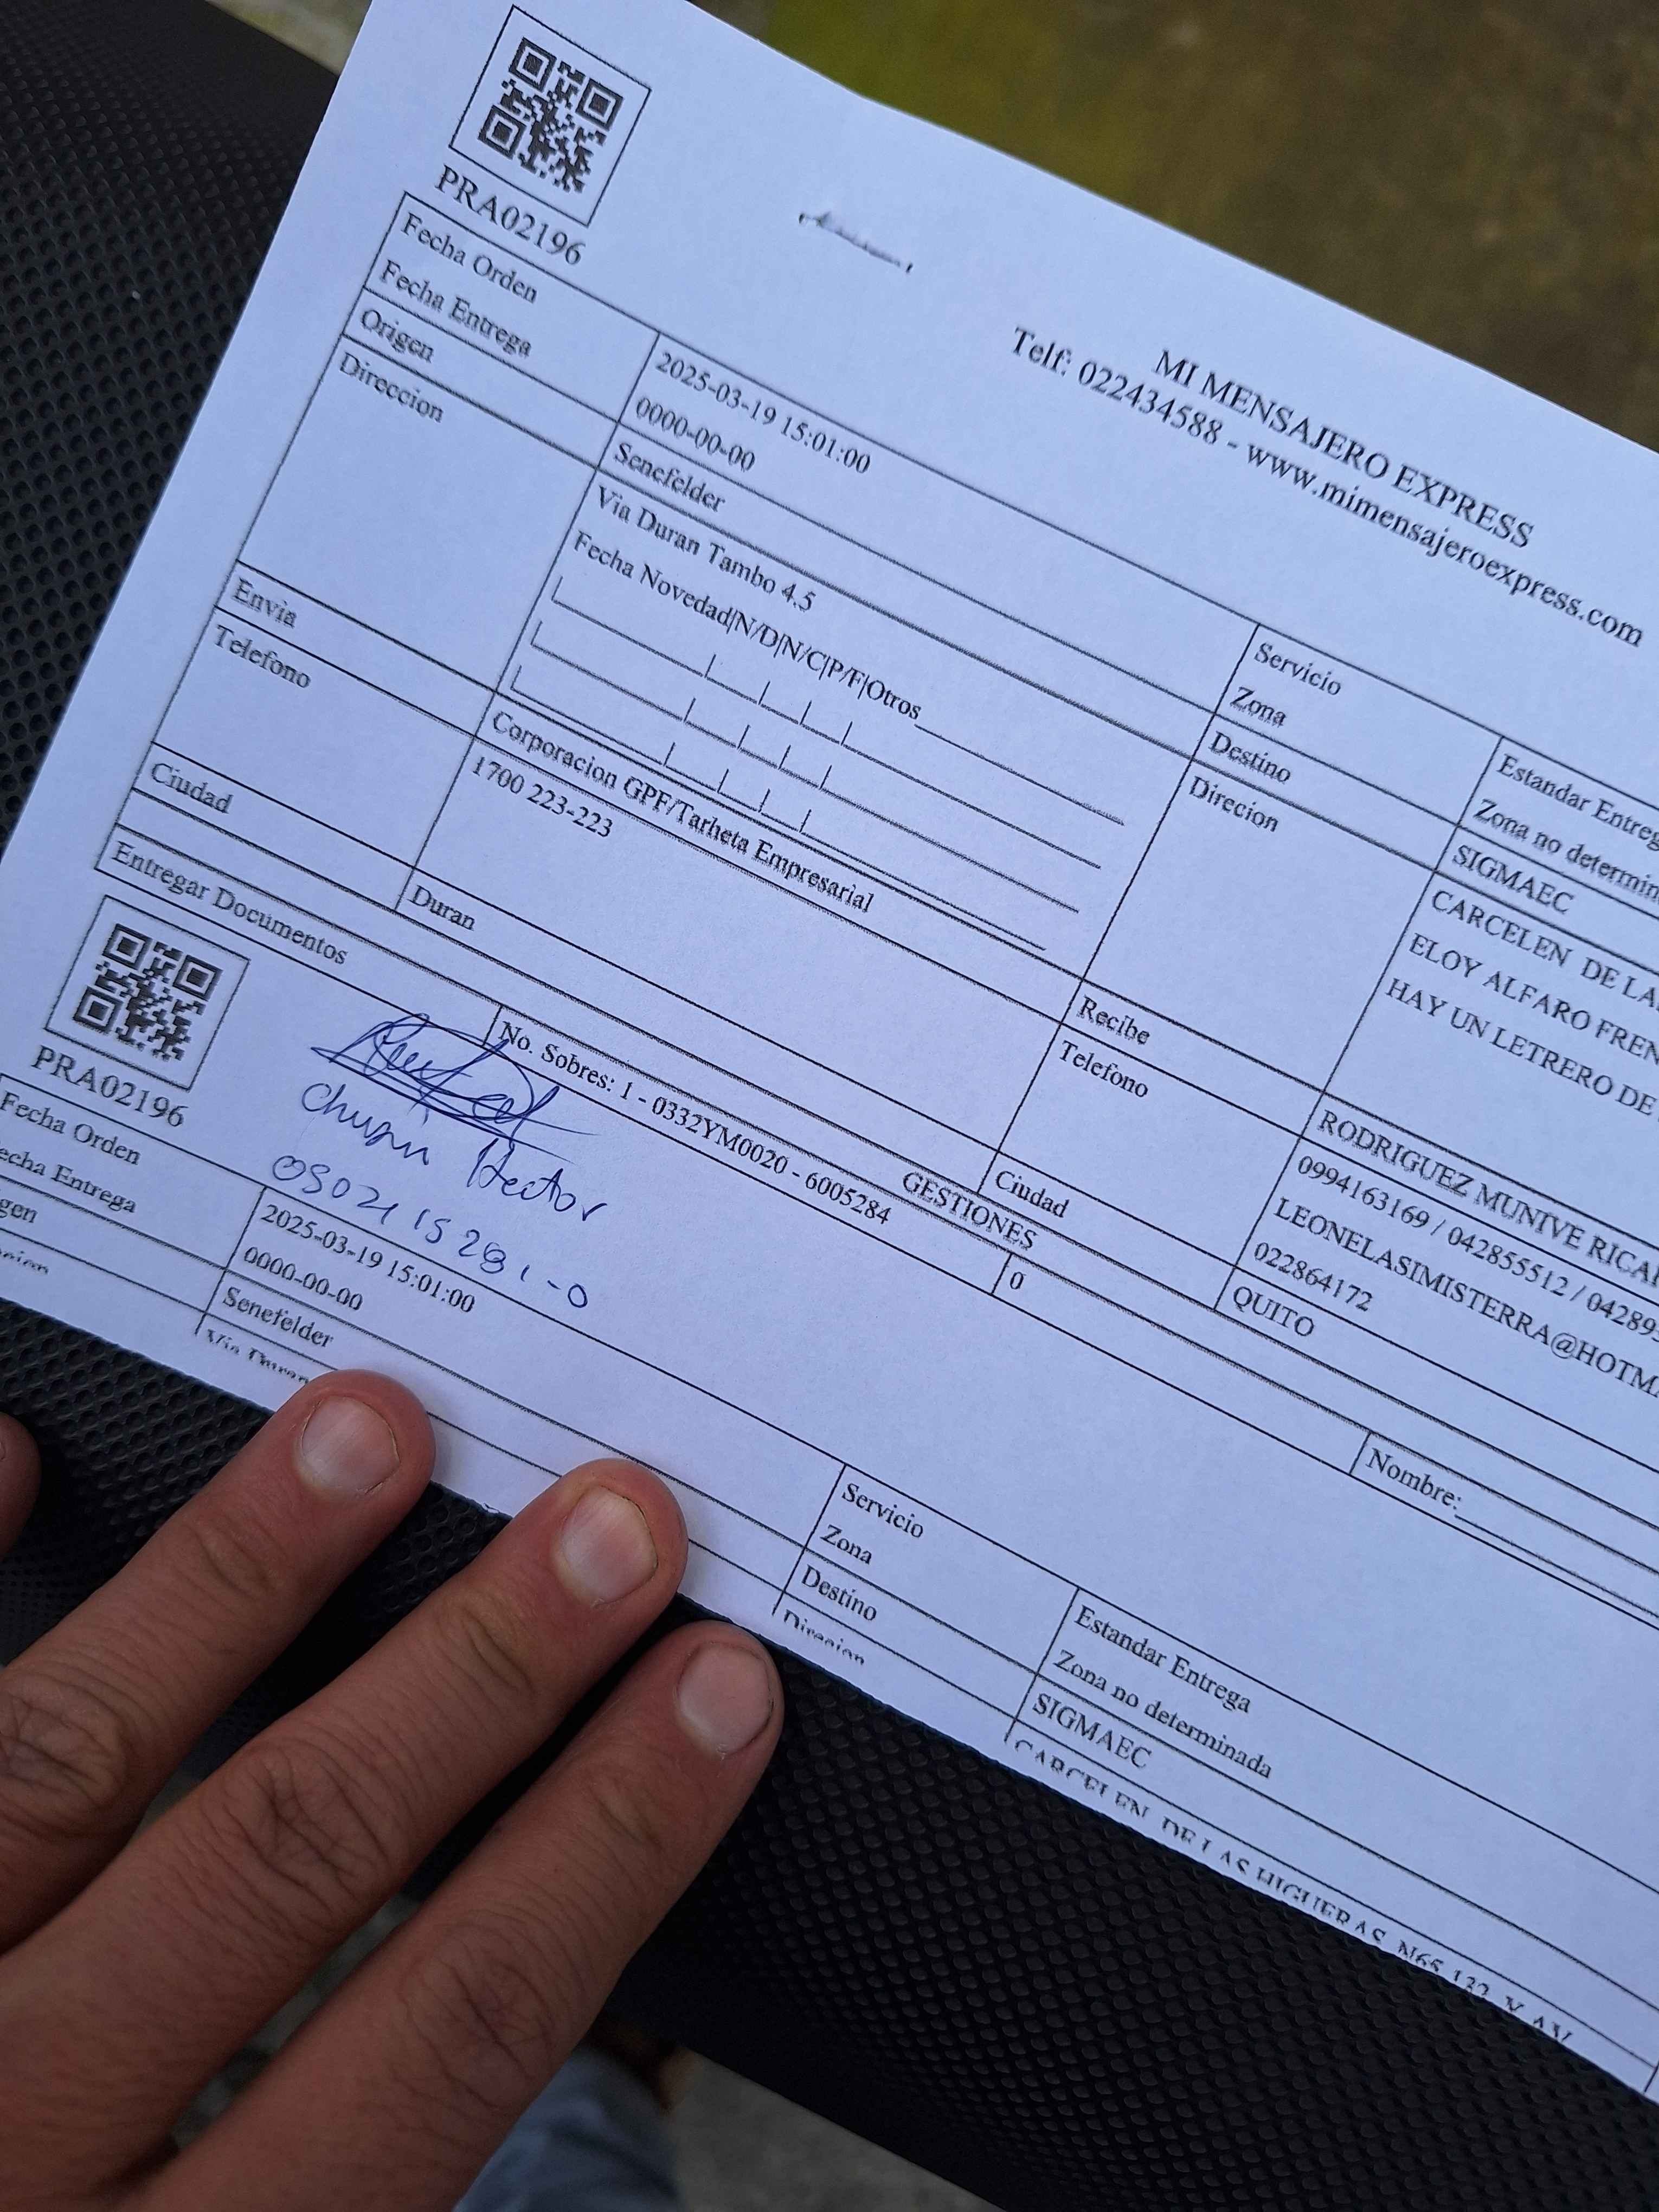 PRA02196
MI MENSAJERO EXPRESS
Telf: 022434588 - www.mimensajeroexpress.com
Fecha Orden 2025-03-19 15:01:00 Servicio Estandar Entreg
Fecha Entrega 0000-00-00 Zona Zona no determin
Origen Senefelder Destino SIGMAEC
Direccion Via Duran Tambo 4.5 Direcion CARCELEN DE LA
Fecha Novedad|N/D|N/C|P/F|Otros ELOY ALFARO FREN
HAY UN LETRERO DE
Envia Corporacion GPF/Tarheta Empresarial Recibe RODRIGUEZ MUNIVE RICA
Telefono 1700 223-223 Telefono 0994163169 / 042855512 / 04289
LEONELASIMISTERRA@HOTM
022864172
Ciudad Duran Ciudad QUITO
GESTIONES
Entregar Documentos No. Sobres: 1 - 0332YM0020 - 6005284 0 Nombre:
PRA02196
Hector
Fecha Orden 2025-03-19 15:01:00 Servicio Estandar Entrega
echa Entrega 0000-00-00 Zona Zona no determinada
gen Senefelder Destino SIGMAEC
Via Duran Direcion CARCELEN DE LAS HIGUERAS N65 132 Y AV